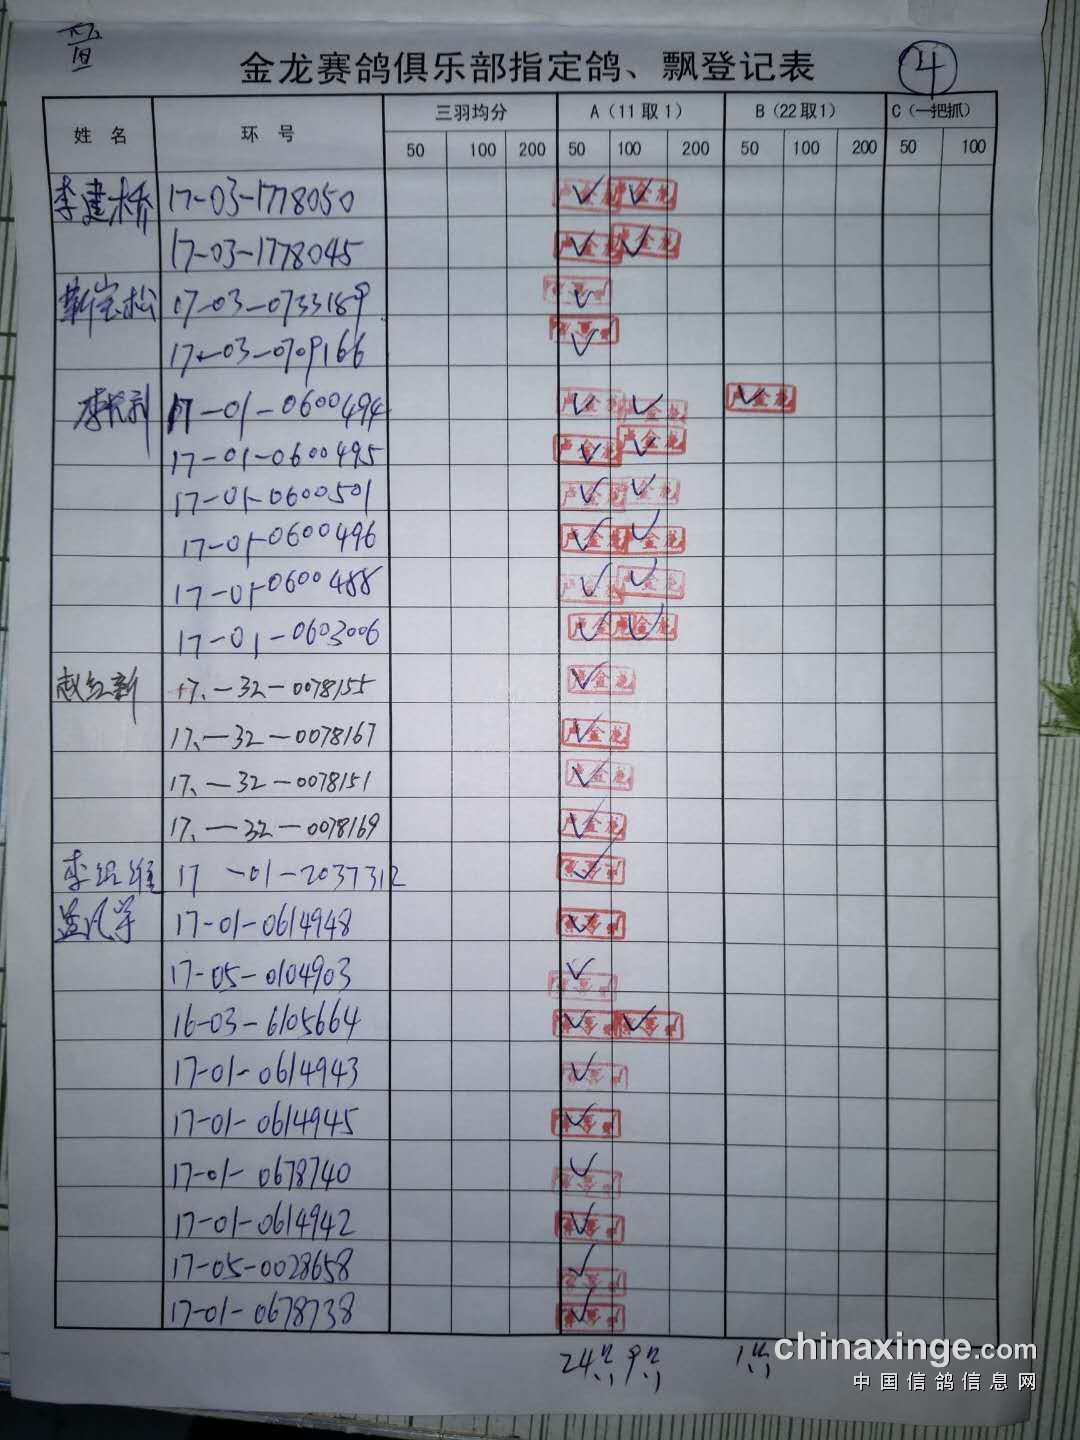 金龙赛鸽俱乐部指定鸽、飘登记表 4
姓名 环号 三羽均分 A（11取1） B（22取1） C（一把抓）
50 100 200 50 100 200 50 100 200 50 100
李建桥 17-03-1778050 ✓ ✓
17-03-1778045 ✓ ✓
靳宝松 17-03-0733189 ✓
17-03-0709166 ✓
17-01-0600494 ✓ ✓ ✓
17-01-0600495 ✓ ✓
17-01-0600501 ✓ ✓
17-01-0600496 ✓ ✓
17-01-0600488 ✓ ✓
17-01-0603006 ✓ ✓
赵红新 17、-32-0078155 ✓
17、-32-0078167 ✓
17、-32-0078151 ✓
17、-32-0078169 ✓
17-01-2037312 ✓
17-01-0614948 ✓
17-05-0104903 ✓
16-03-6105664 ✓ ✓
17-01-0614943 ✓
17-01-0614945 ✓
17-01-0678740 ✓
17-01-0614942 ✓
17-05-0028658 ✓
17-01-0678738 ✓
24 9 1
chinaxinge.com
中国信鸽信息网